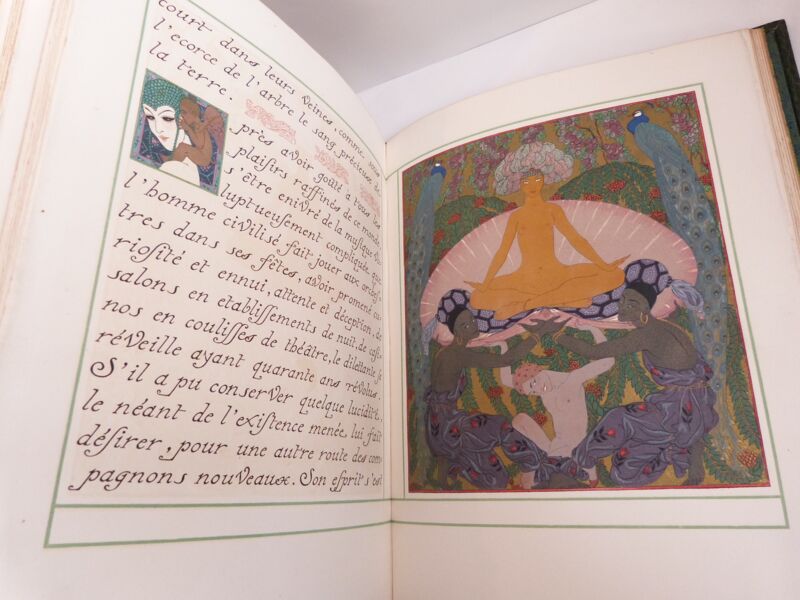 court dans leurs veines, comme sous
l'ecorce de l'arbre le sang précieux de
la terre.
près avoir goûté a tous les
plaisirs raffinés de ce monde,
s'être enivré de la musique vo-
luptueusement compliquée que
l'homme civilisé fait jouer aux orches-
tres dans ses fêtes, avoir promené cu-
riosité et ennui, attente et déception, de
salons en etablissements de nuit, de casi-
nos en coulisses de théâtre, le dilettante se
réveille ayant quarante ans révolus.
S'il a pu conserver quelque lucidité,
le néant de l'existence menée lui fait
désirer, pour une autre route des com
pagnons nouveaux. Son esprit s'est